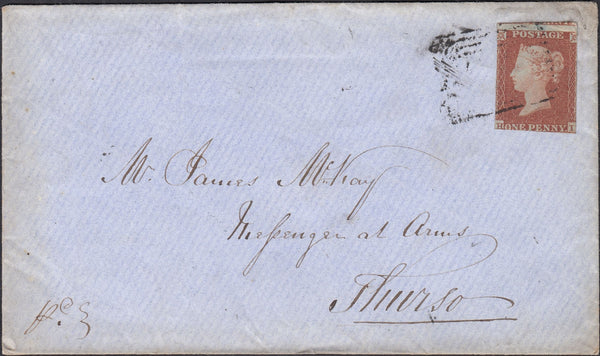 POSTAGE
ONE PENNY
Mr. James McKay
Messenger at Arms
Thurso